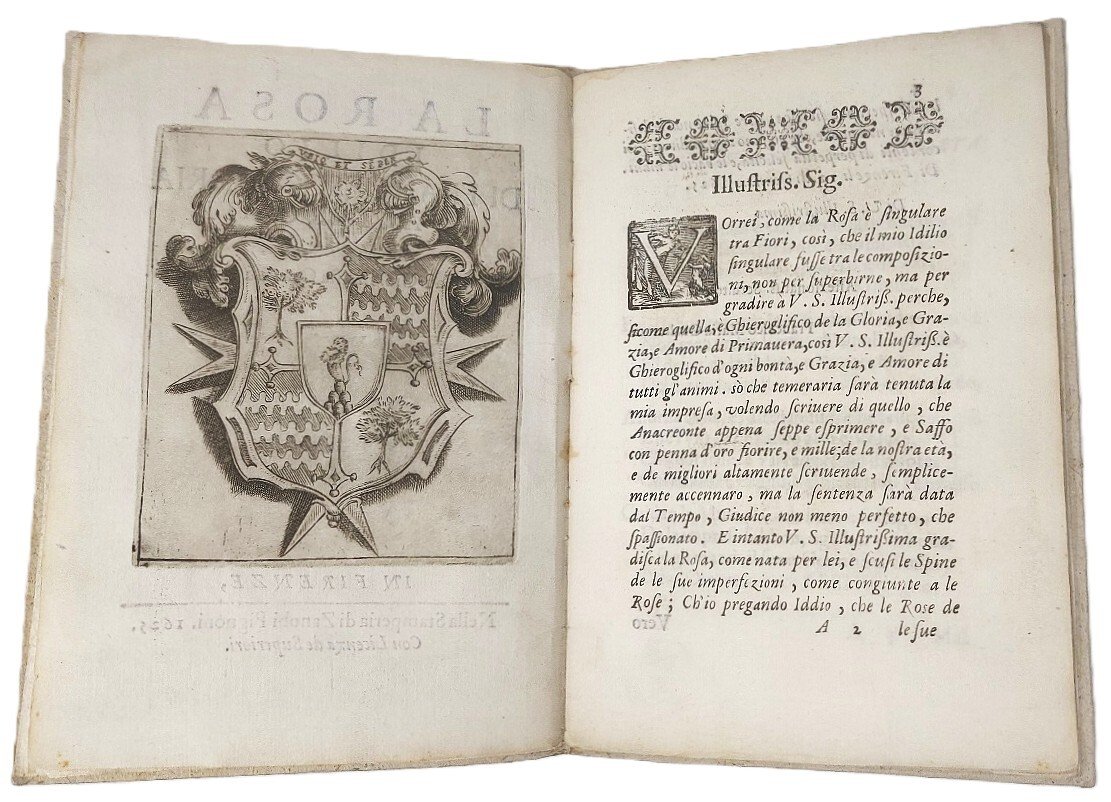 LA ROSA
IN FIRENZE,
Nella Stamperia di Zanobi Pignoni. 1625.
Con Licenza de Superiori.
3
Illuſtriſs. Sig.
VOrrei, come la Roſa è ſingulare
tra Fiori, così, che il mio Idilio
ſingulare fuſſe tra le compoſizio-
ni, non per ſuperbirne, ma per
gradire a V. S. Illuſtriſſ. perche,
ſicome quella, è Ghieroglifico de la Gloria, e Gra-
zia, e Amore di Primauera, così V. S. Illuſtriſſ. è
Ghieroglifico d'ogni bontà, e Grazia, e Amore di
tutti gl'animi. sò che temeraria ſarà tenuta la
mia impreſa, volendo ſcriuere di quello, che
Anacreonte appena ſeppe eſprimere, e Saffo
con penna d'oro fiorire, e mille; de la noſtra età,
e de migliori altamente ſcriuende, ſemplice-
mente accennaro, ma la ſentenza ſarà data
dal Tempo, Giudice non meno perfetto, che
ſpaſſionato. E intanto V. S. Illuſtriſſima gra-
diſca la Roſa, come nata per lei, e ſcuſi le Spine
de le ſue imperfezioni, come congiunte a le
Roſe; Ch'io pregando Iddio, che le Roſe de
A 2 le ſue